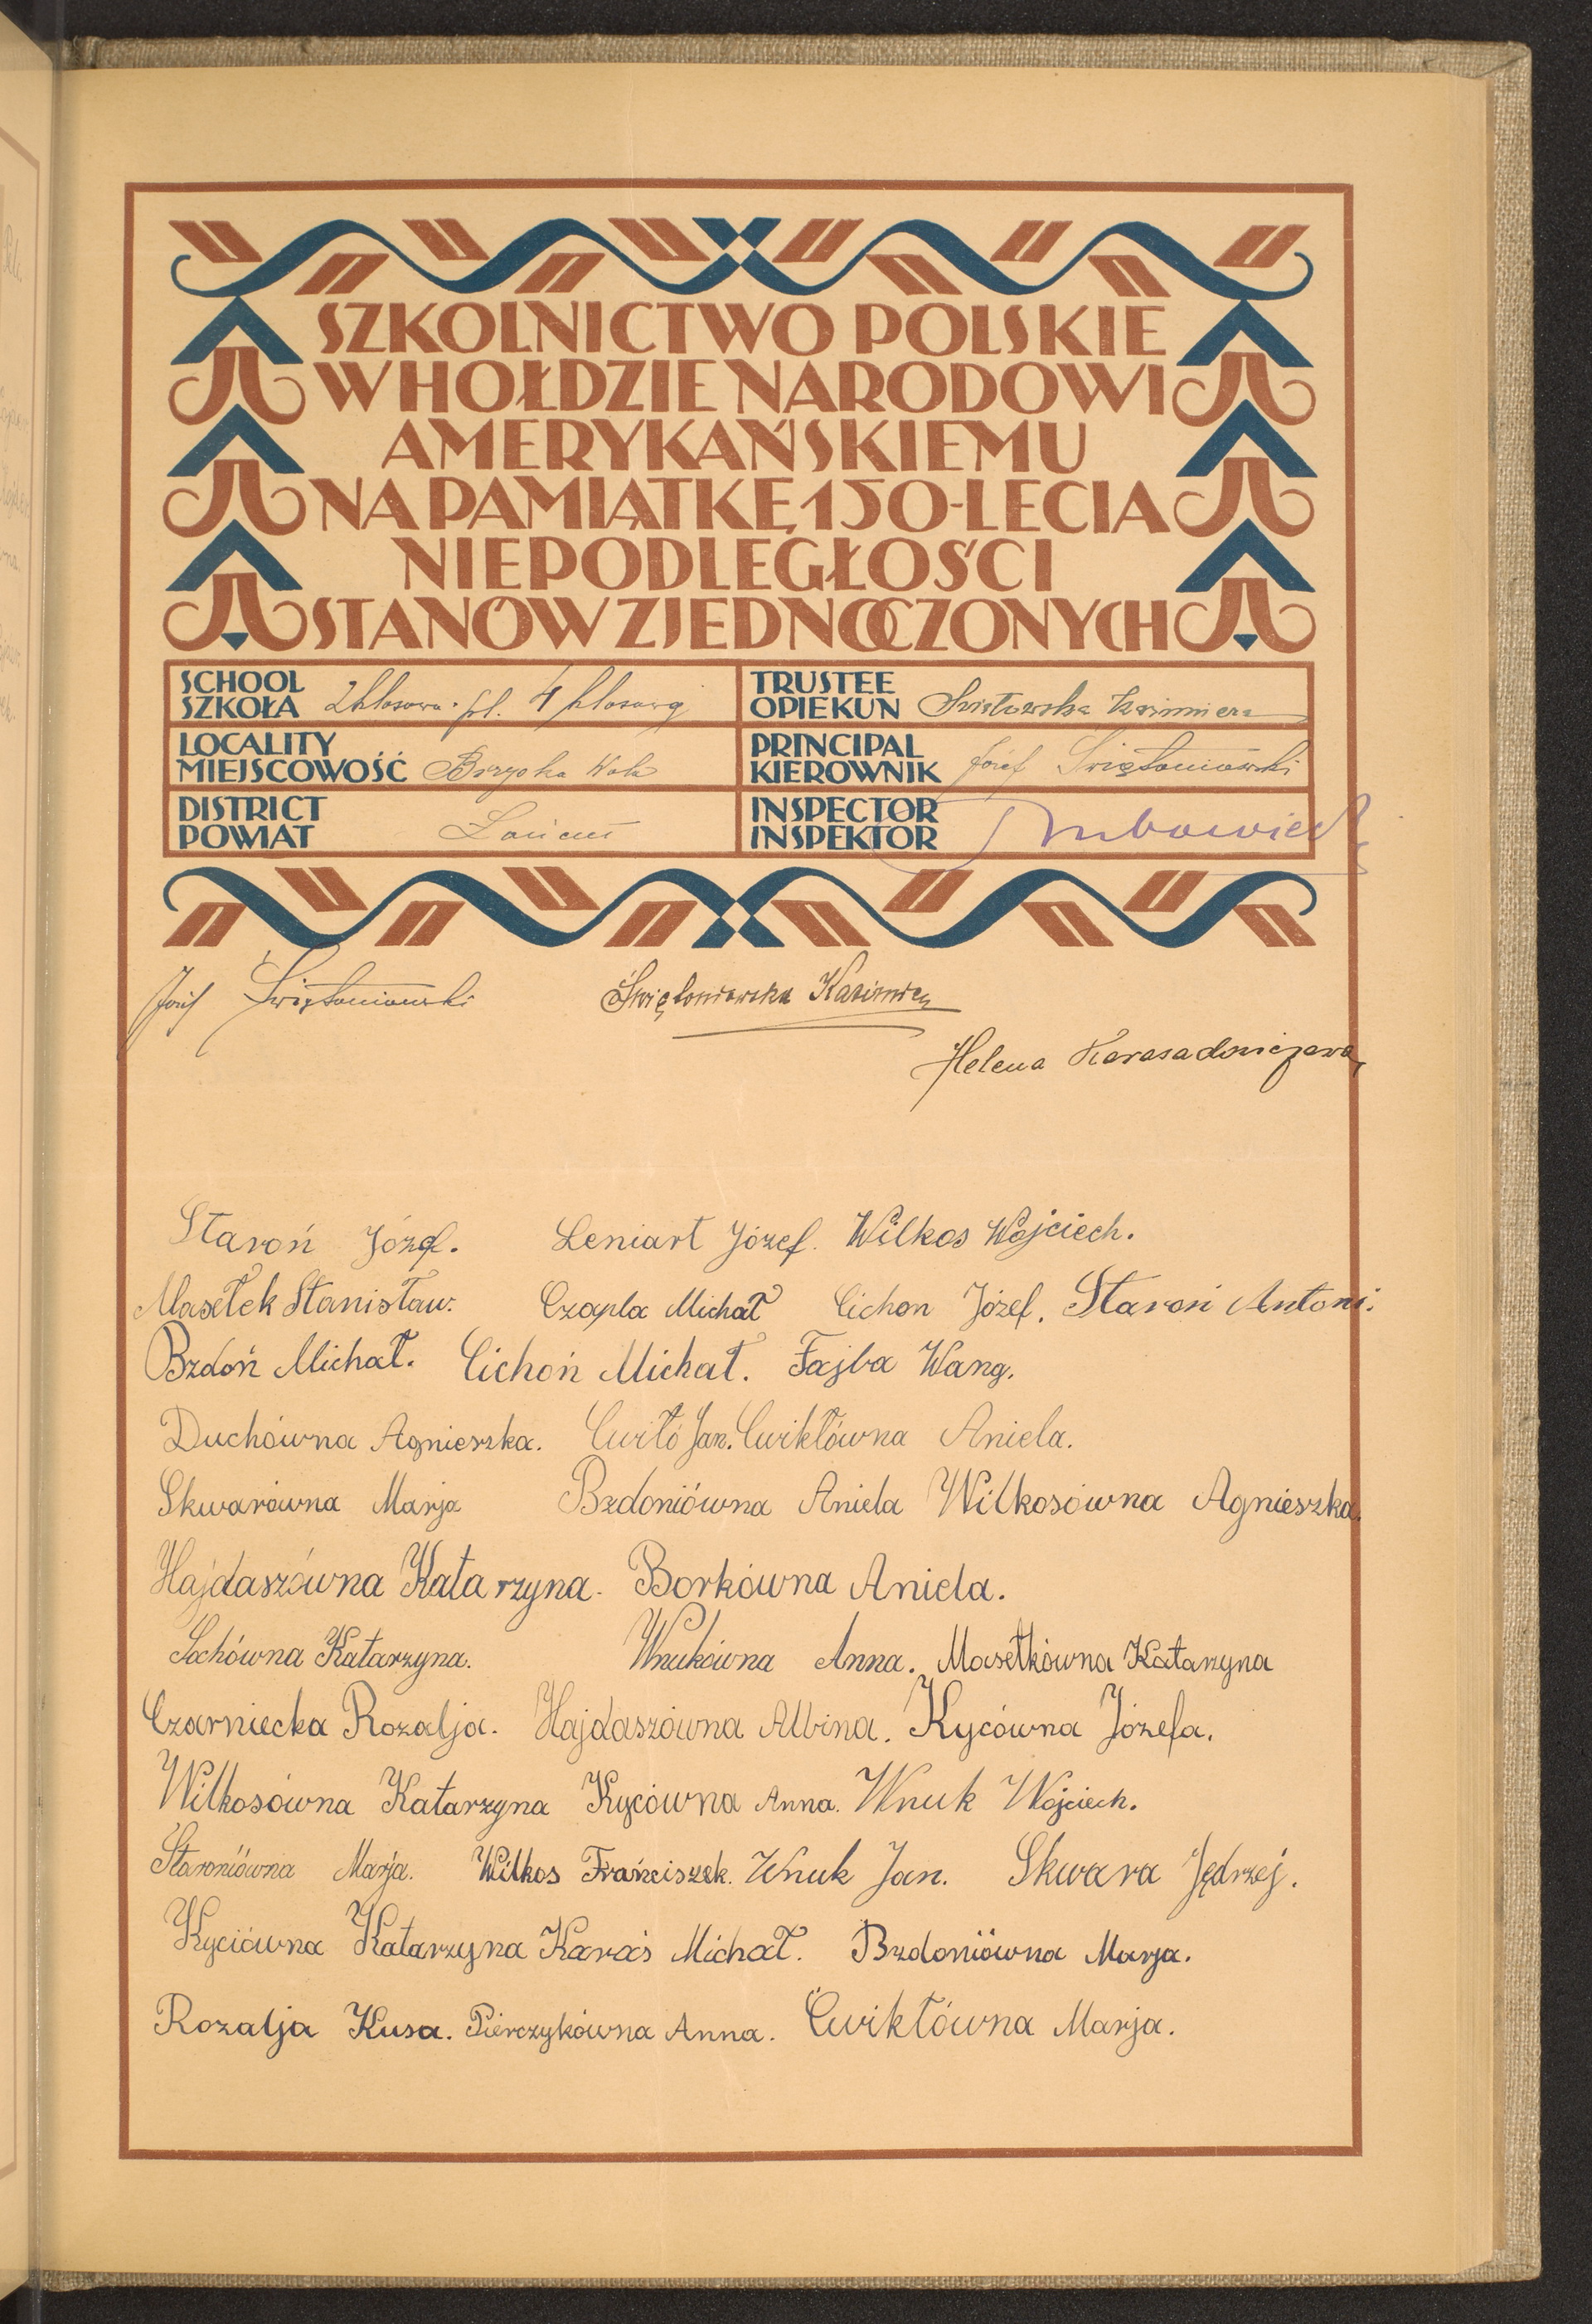 SZKOLNICTWO POLSKIE
W HOŁDZIE NARODOWI
AMERYKAŃSKIEMU
NA PAMIĄTKĘ 150-LECIA
NIEPODLEGŁOŚCI
STANÓW ZJEDNOCZONYCH
SCHOOL
SZKOŁA 2 klasowa. pl. 4 klasowej
TRUSTEE
OPIEKUN Kazimiera
LOCALITY
MIEJSCOWOŚĆ Brzyska Wola
PRINCIPAL
KIEROWNIK Józef Świętoniowski
DISTRICT
POWIAT Łańcut
INSPECTOR
INSPEKTOR
Józef Świętoniowski Świętoniowska Kazimiera
Helena
Staroń Józef. Leniart Józef. Wilkos Wojciech.
Masełek Stanisław. Czapla Michał Cichon Józef. Staroń Antoni.
Bzdoń Michał. Cichoń Michał. Fajba Wang.
Duchówna Agnieszka. Ćwikło Jan. Ćwikłówna Aniela.
Skwarówna Marja Bzdoniówna Aniela Wilkosówna Agnieszka.
Hajdaszówna Katarzyna. Borkówna Aniela.
Sochówna Katarzyna. Wnukówna Anna. Masełkówna Katarzyna
Czarniecka Rozalja. Hajdaszówna Albina. Kycówna Józefa.
Wilkosówna Katarzyna Kycówna Anna. Wnuk Wojciech.
Staroniówna Marja. Wilkos Franciszek. Wnuk Jan. Skwara Jędrzej.
Kyciówna Katarzyna Karaś Michał. Bzdoniówna Marja.
Rozalja Kusa. Pierczykówna Anna. Ćwikłówna Marja.